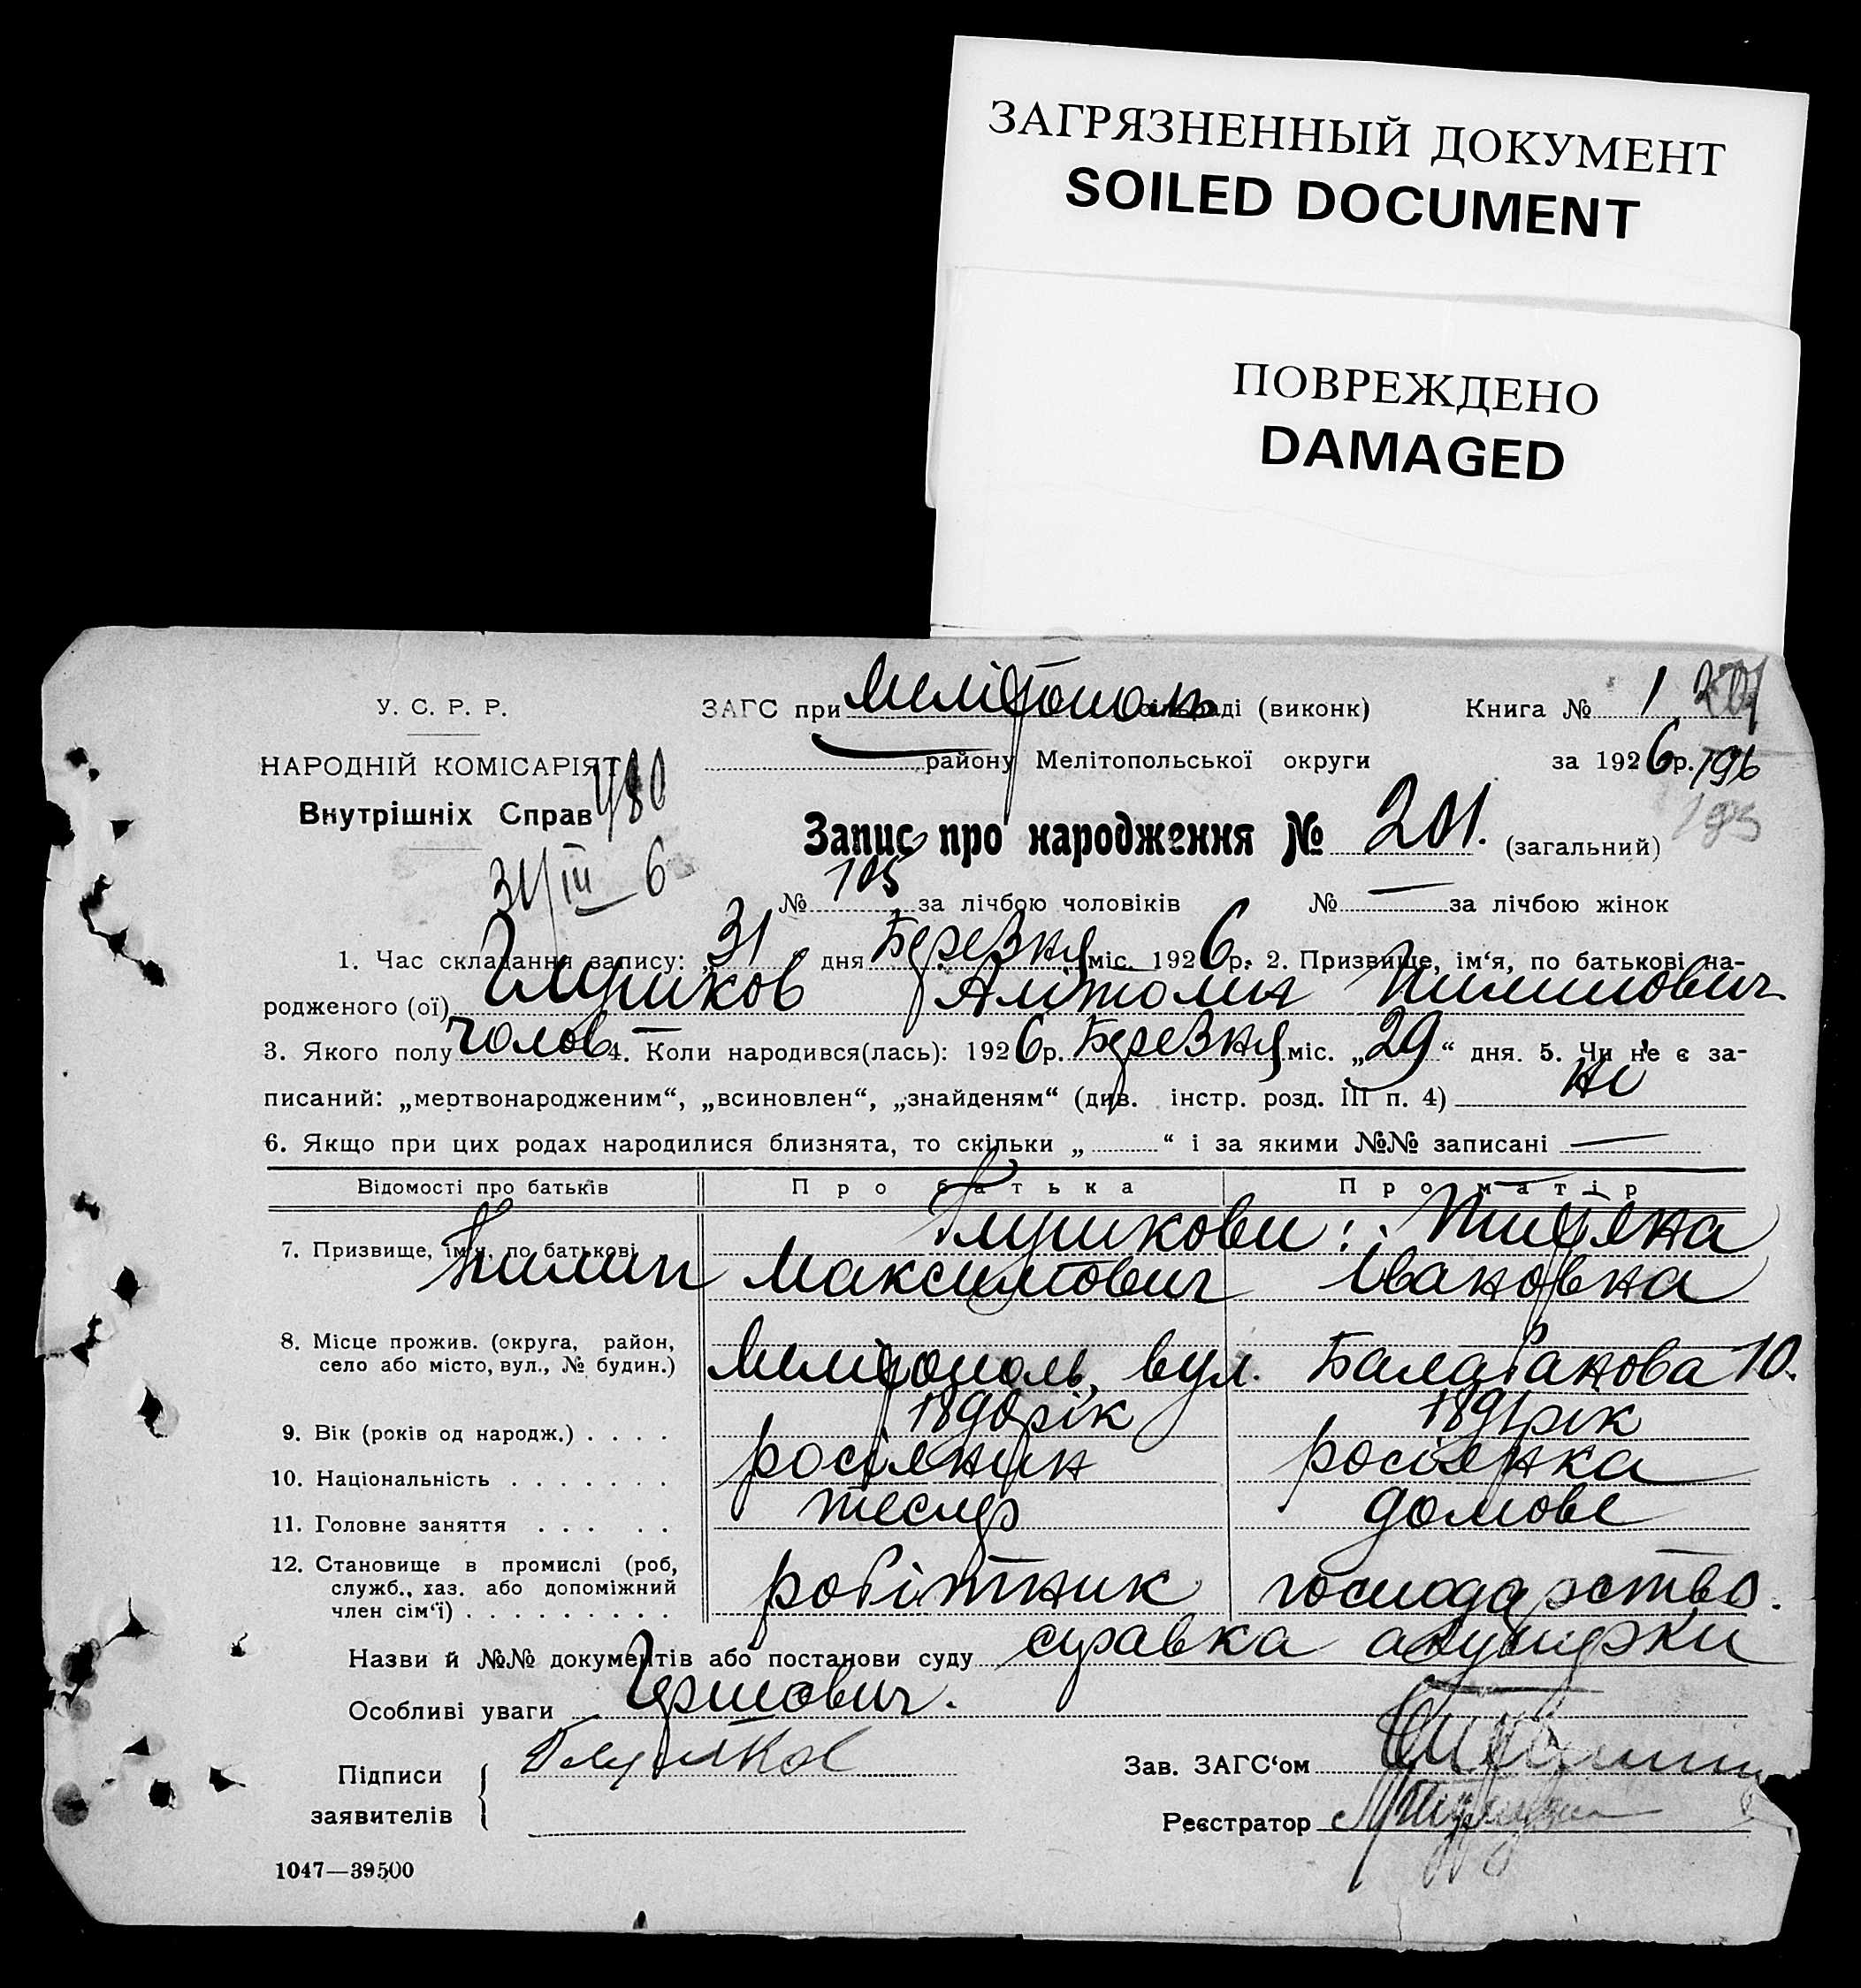 ЗАГРЯЗНЕННЫЙ ДОКУМЕНТ
SOILED DOCUMENT
ПОВРЕЖДЕНО
DAMAGED
У. С. Р. Р.
ЗАГС при Мелітополь раді (виконк)
Книга № 1 201
НАРОДНІЙ КОМІСАРІЯТ
району Мелітопольської округи
за 1926 р. 196
Внутрішніх Справ
980
Запис про народження № 201. (загальний)
195
31/III 6
№ 105 за лічбою чоловіків № — за лічбою жінок
1. Час складання запису: „31 дня Березня міс. 1926 р. 2. Призвище, ім‘я, по батькові на-
родженого (ої) Глушков Анатолий Пилипович
3. Якого полу чолов 4. Коли народився(лась): 1926 р. Березня міс. „29“ дня. 5. Чи не є за-
писаний: „мертвонародженим“, „всиновлен“, „знайденям“ (див. інстр. розд. III п. 4) ні
6. Якщо при цих родах народилися близнята, то скільки „ “ і за якими №№ записані —
Відомості про батьків Про батька Про матір
Глушкови: Титяна
7. Призвище, ім‘я, по батькові
Пилип Максимович Івановна
8. Місце прожив. (округа, район,
село або місто, вул., № будин.) Мелітополь, вул. Балабанова 10.
9. Вік (років од народж.) . . . . 1890 рік 1891 рік
10. Національність . . . . . . . росіянин росіянка
11. Головне заняття . . . . . тесляр домове
12. Становище в промислі (роб,
служб., хаз. або допоміжний
член сім‘ї) . . . . . . . . . робітник господарство.
Назви й №№ документів або постанови суду справка акушерки
Особливі уваги Гершович.
Підписи
заявителів
Глушков
Зав. ЗАГС‘ом
Реєстратор
1047—39500